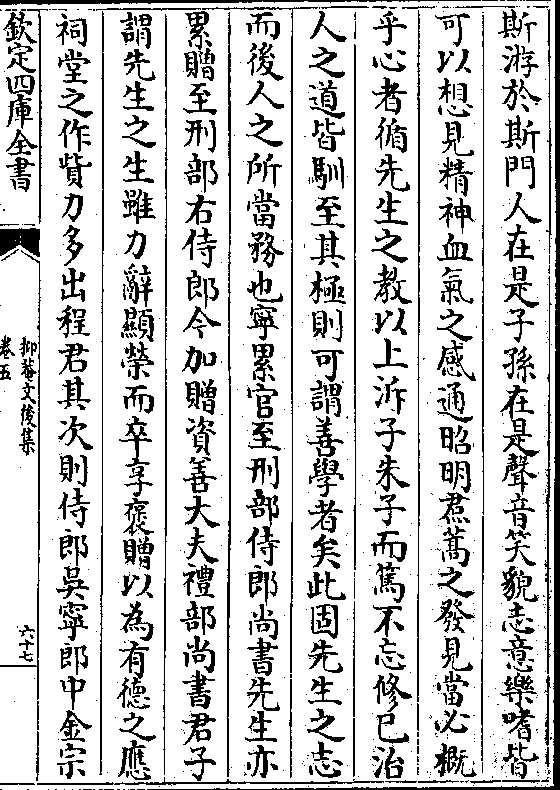 斯游於斯門人在是子孫在是聲音笑貌志意樂嗜皆
可以想見精神血氣之感通昭明焄蒿之發見當必概
乎心者循先生之教以上泝子朱子而篤不忘修已治
人之道皆馴至其極則可謂善學者矣此固先生之志
而後人之所當務也寧累官至刑部侍郎尚書先生亦
累贈至刑部右侍郎今加贈資善大夫禮部尚書君子
謂先生之生雖力辭顯榮而卒享褒贈以為有德之應
祠堂之作貲力多出程君其次則侍郎吳寧郎中金宗
欽定四庫全書
抑菴文後集
卷五
六十七